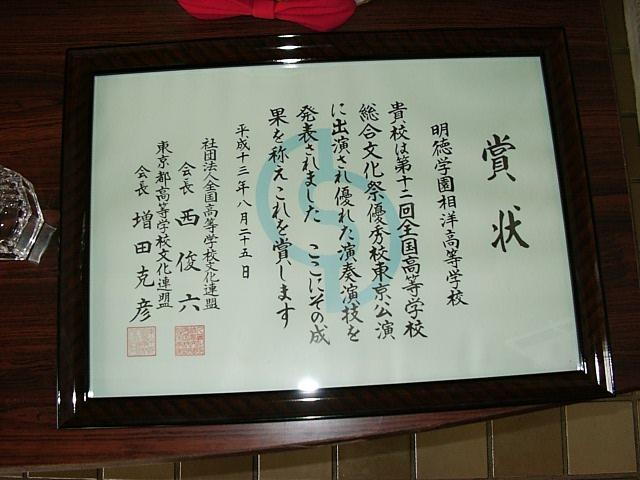 賞状
明徳学園相洋高等学校
貴校は第十二回全国高等学校
総合文化祭優秀校東京公演
に出演され優れた演奏演技を
発表されました ここにその成
果を称えこれを賞します
平成十三年八月二十五日
社団法人全国高等学校文化連盟
会長 西俊六
東京都高等学校文化連盟
会長 増田克彦